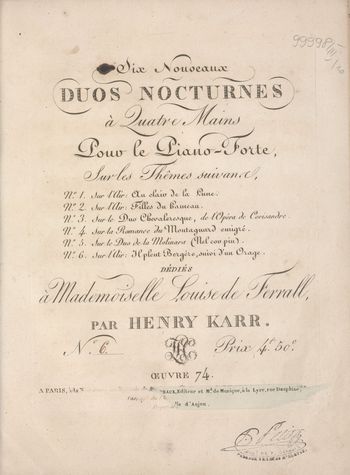 99998/
Six Nouveaux
DUOS NOCTURNES
à Quatre Mains
Pour le Piano-Forte,
Sur les Thêmes suivans,
N.º 1. Sur l'Air: Au clair de la Lune.
N.º 2. Sur l'Air: Filles du hameau.
N.º 3. Sur le Duo Chevaleresque, de l'Opéra de Corisandre.
N.º 4. Sur la Romance du Montagnard émigré.
N.º 5. Sur le Duo de la Molinara (Nel cor piu).
N.º 6. Sur l'Air: Il pleut Bergère, suivi d'un Orage.
DÉDIÉS
à Mademoiselle Louise de Ferrall,
PAR HENRY KARR.
N.º 6. Prix 4.f 50.c
ŒUVRE 74.
A PARIS, Editeur et M.d de Musique, à la Lyre, rue Dauphine
d'Anjou.